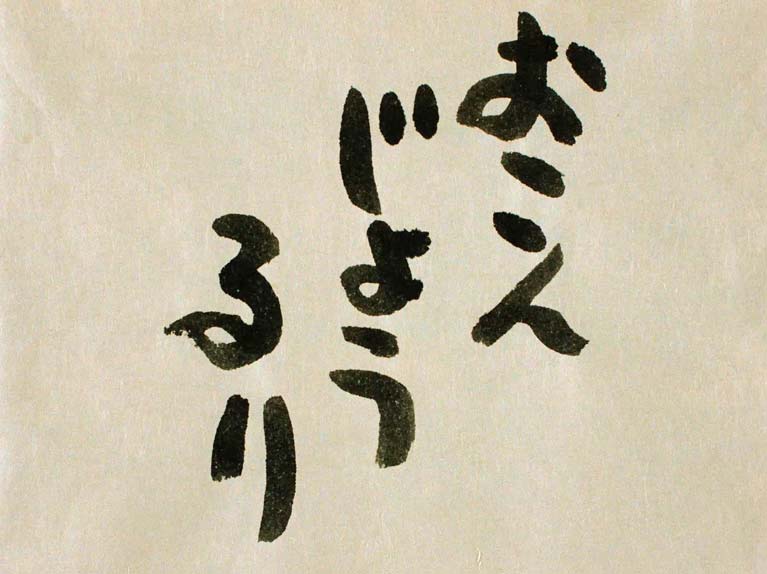 おこん
じょう
るり